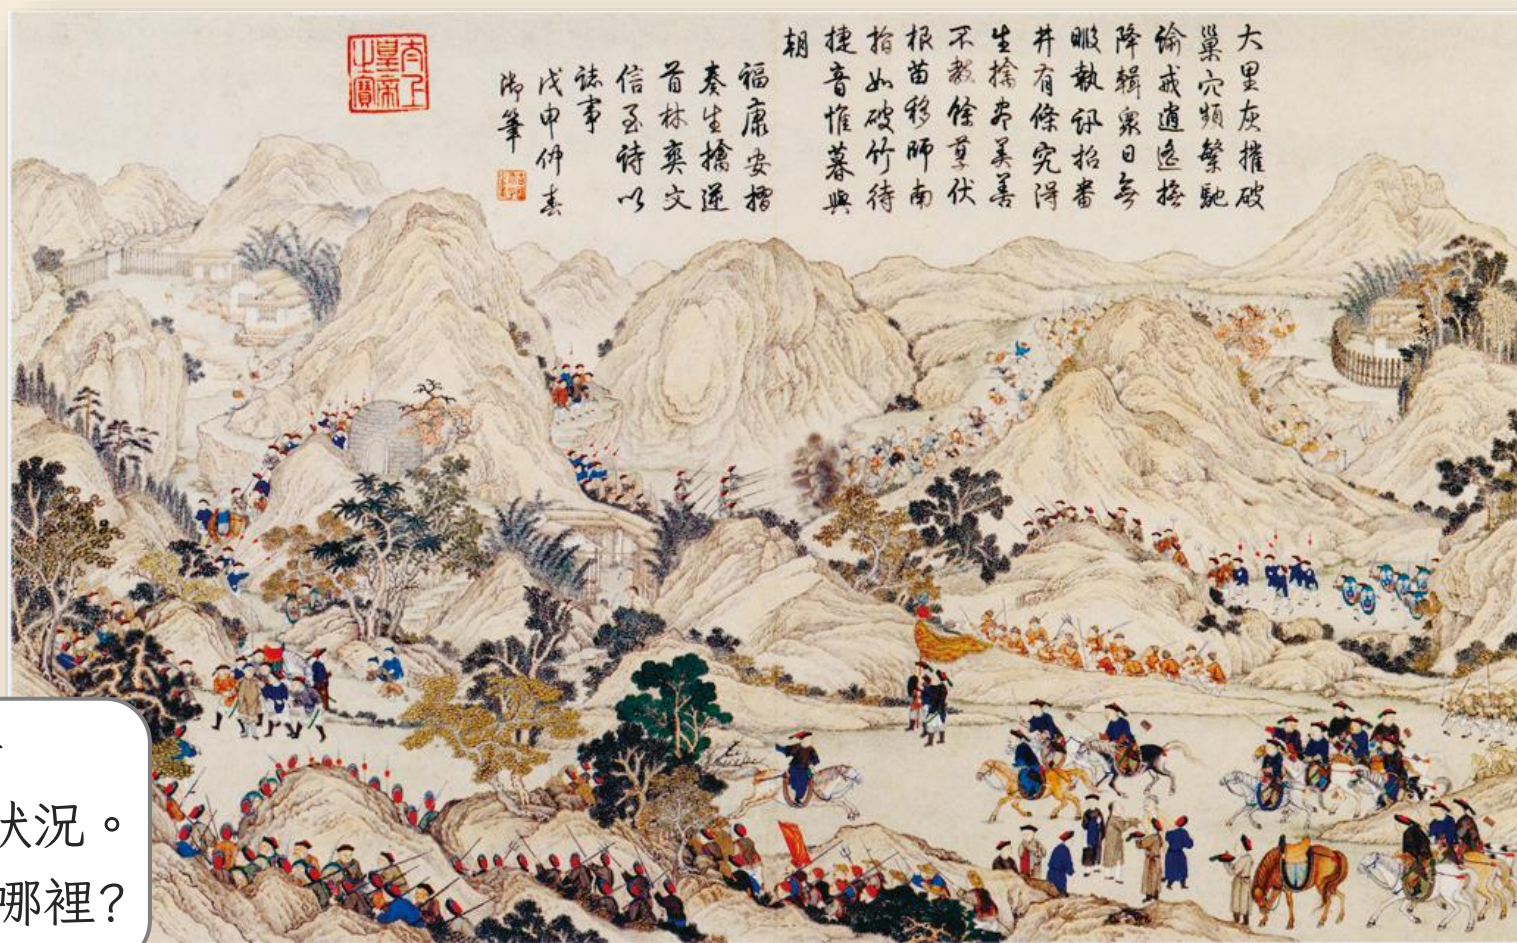 大里灰摧破
巢穴頻繁馳
諭戒遁逃擒
降輯衆日無
暇執訊招番
井有條究得
生擒盡美善
不教餘孽伏
根苗移師南
指如破竹待
捷音惟暮與
朝
福康安摺
奏生擒逆
首林爽文
信至詩以
誌事
戊申仲春
御筆
太上皇帝之寶
狀況。
哪裡?